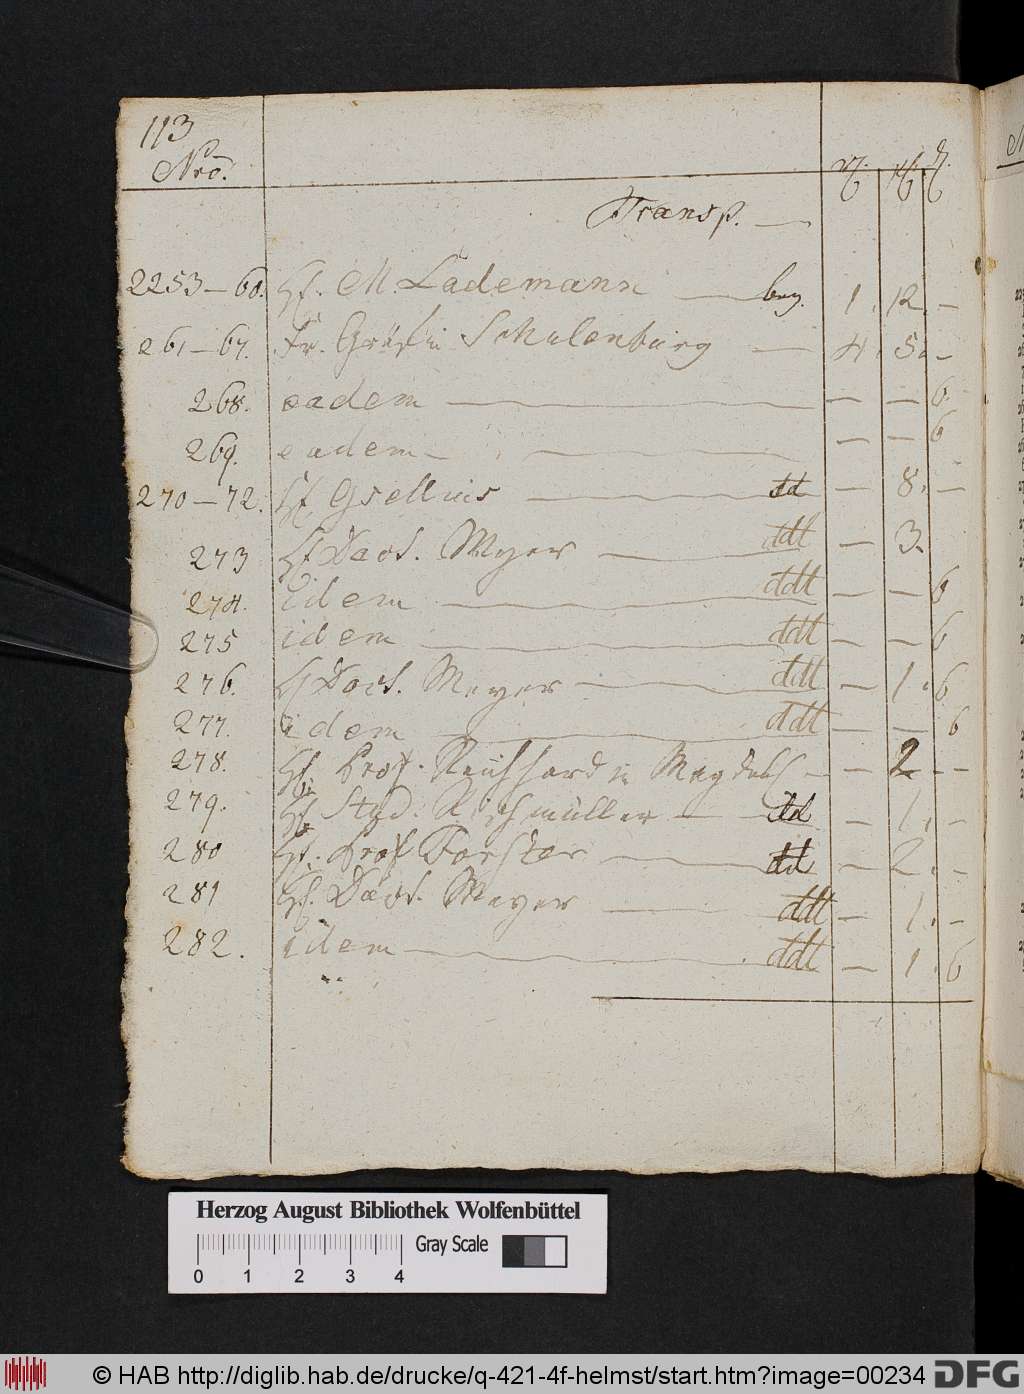 113
Nro.
Transp. —
2253—60. H. M. Lademann — bez. 1. 12. —
261—67. Fr. Gräfin Schulenburg — 4. 5. —
268. eadem — — — 6.
269. eadem — — — 6
270—72. H. Gsellius — dd — 8. —
273 H. Doct. Meyer — ddt — 3.
274. idem — ddt — — 6
275 idem — ddt — — 6
276. H. Doct. Meyer — ddt — 1. 6
277. idem — ddt — — 6
278. H. Prof. in — — 2 —
279. H. Stud. — dd — 1. —
280 H. Prof. Forster — dd — 2. —
281 H. Doct. Meyer — ddt — 1. —
282. idem — ddt — 1. 6
Herzog August Bibliothek Wolfenbüttel
Gray Scale
0 1 2 3 4
© HAB http://diglib.hab.de/drucke/q-421-4f-helmst/start.htm?image=00234
DFG